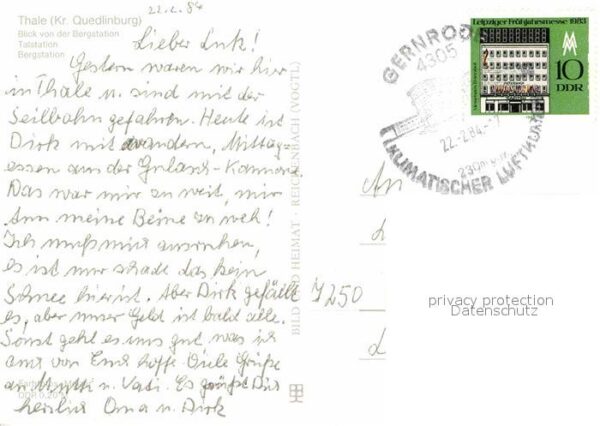 22.2.84
Thale (Kr. Quedlinburg)
Blick von der Bergstation
Talstation
Bergstation
Lieber Lutz!
Gestern waren wir hier
in Thale u. sind mit der
Seilbahn gefahren. Heute ist
Dirk mit wandern, Mittag-
essen aus der Gulasch-Kanone
Das war mir zu weit, mir
tun meine Beine zu weh!
Ich muß mich ausruhen,
es ist nur schade das kein
Schnee hier ist. Aber Dirk gefällt
es, aber unser Geld ist bald alle.
Sonst geht es uns gut, was ich
auch von Euch hoffe Viele Grüße
an Mutti u. Vati. Es grüßt Dich
herzlich Oma u. Dirk
DDR
BILD UND HEIMAT · REICHENBACH (VOGTL)
GERNRODE
4305
22.2.84
KLIMATISCHER LUFTKURORT
Leipziger Frühjahrsmesse 1983
10
DDR
An
7250
privacy protection
Datenschutz